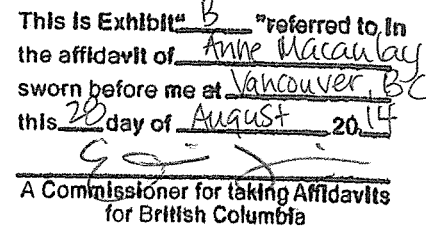 This is Exhibit "B" referred to in
the affidavit of Anne Macaulay
sworn before me at Vancouver, BC
this 20 day of August 2014
A Commissioner for taking Affidavits
for British Columbia